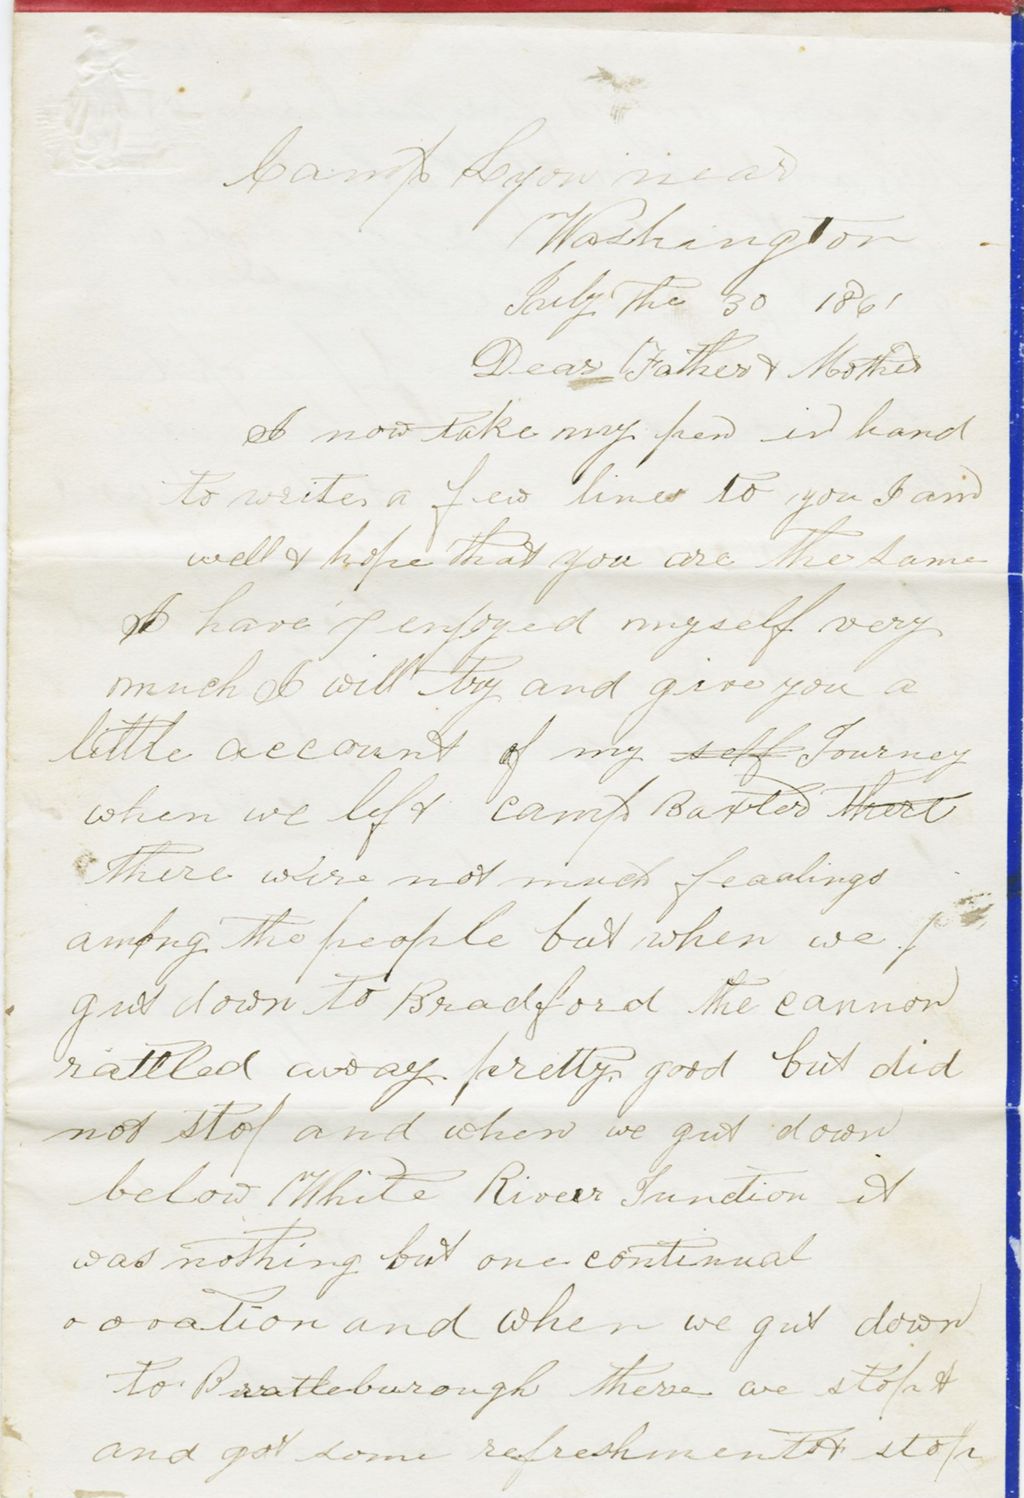 Camp Lyon near
Washington
July the 30 1861
Dear Father & Mother
I now take my pen in hand
to write a few lines to you I am
well & hope that you are the same
I have enjoyed myself very
much I will try and give you a
little account of my self Journey
when we left camp Baxter there
there were not much feealings
among the people but when we
gut down to Bradford the cannon
rattled away pretty good but did
not stop and when we gut down
below White River Junction it
was nothing but one continual
ovation and when we gut down
to Brattleburough there we stopt
and got some refreshments stop